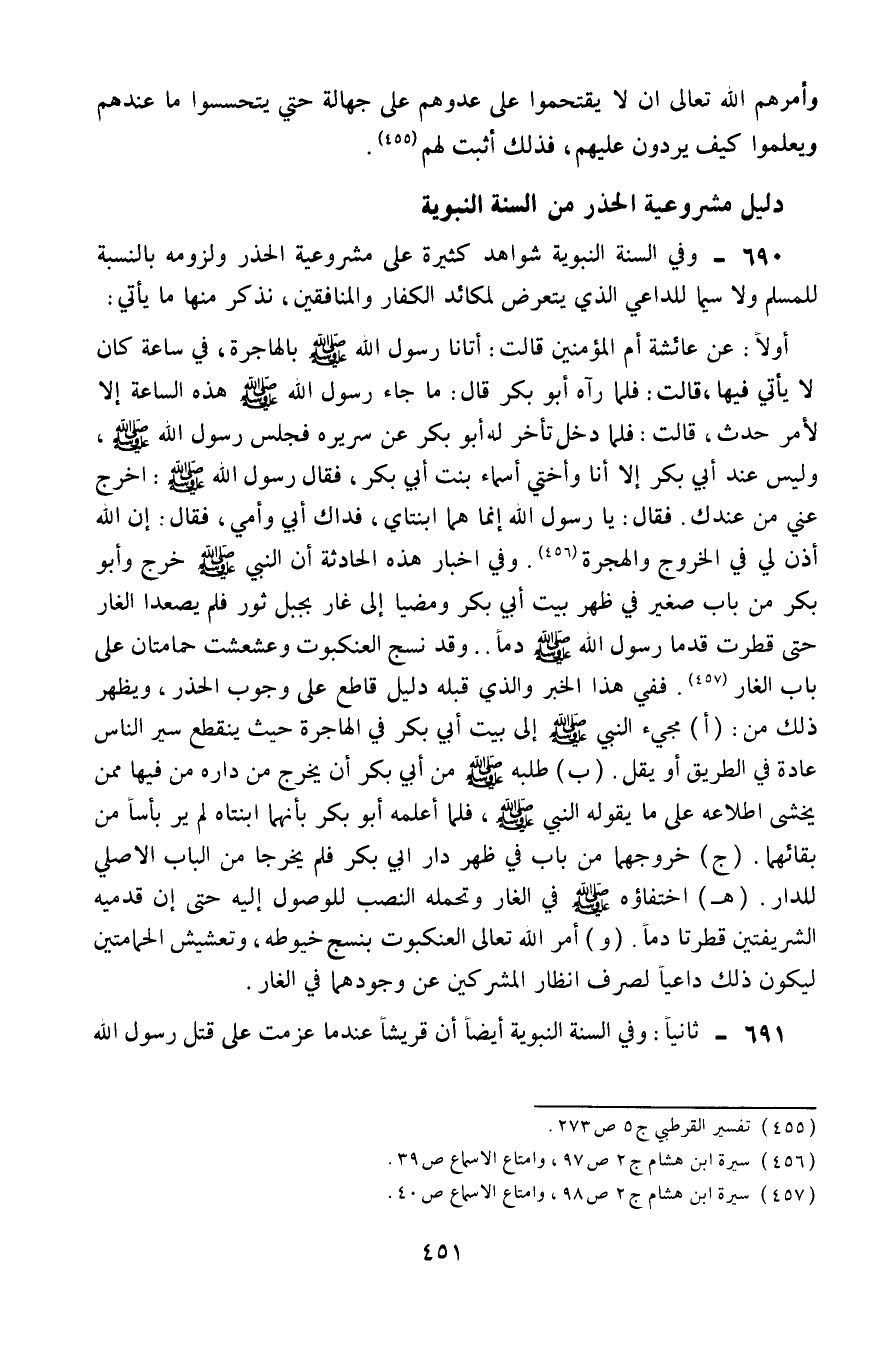 وأمرهم الله تعالى ان لا يقتحموا على عدوهم على جهالة حتي يتحسسوا ما عندهم
ويعلموا كيف يردون عليهم، فذلك أثبت لهم(٤٥٥) .
دليل مشروعية الحذر من السنة النبوية
٦٩٠ ـ وفي السنة النبوية شواهد كثيرة على مشروعية الحذر ولزومه بالنسبة
للمسلم ولا سيما للداعي الذي يتعرض لمكائد الكفار والمنافقين، نذكر منها ما يأتي:
أولاً: عن عائشة أم المؤمنين قالت: أتانا رسول الله ﷺ بالهاجرة، في ساعة كان
لا يأتي فيها،قالت: فلما رآه أبو بكر قال: ما جاء رسول الله ﷺ هذه الساعة إلا
لأمر حدث، قالت: فلما دخل تأخر له أبو بكر عن سريره فجلس رسول الله ﷺ ،
وليس عند أبي بكر إلا أنا وأختي أسماء بنت أبي بكر، فقال رسول الله ﷺ : اخرج
عني من عندك. فقال: يا رسول الله إنما هما ابنتاي، فداك أبي وأمي، فقال: إن الله
أذن لي في الخروج والهجرة(٤٥٦). وفي اخبار هذه الحادثة أن النبي ﷺ خرج وأبو
بكر من باب صغير في ظهر بيت أبي بكر ومضيا إلى غار بجبل ثور فلم يصعدا الغار
حتى قطرت قدما رسول الله ﷺ دماً.. وقد نسج العنكبوت وعشعشت حمامتان على
باب الغار (٤٥٧). ففي هذا الخبر والذي قبله دليل قاطع على وجوب الحذر، ويظهر
ذلك من: (أ) مجيء النبي ﷺ إلى بيت أبي بكر في الهاجرة حيث ينقطع سير الناس
عادة في الطريق أو يقل. (ب) طلبه ﷺ من أبي بكر أن يخرج من داره من فيها ممن
يخشى اطلاعه على ما يقوله النبي ﷺ ، فلما أعلمه أبو بكر بأنهما ابنتاه لم ير بأساً من
بقائهما. (ج) خروجهما من باب في ظهر دار ابي بكر فلم يخرجا من الباب الاصلي
للدار. (هـ) اختفاؤه ﷺ في الغار وتحمله النصب للوصول إليه حتى إن قدميه
الشريفتين قطرتا دماً. (و) أمر الله تعالى العنكبوت بنسج خيوطه، وتعشيش الحمامتين
ليكون ذلك داعياً لصرف انظار المشركين عن وجودهما في الغار.
٦٩١ ـ ثانياً: وفي السنة النبوية أيضاً أن قريشاً عندما عزمت على قتل رسول الله
(٤٥٥) تفسير القرطبي ج٥ ص٢٧٣.
(٤٥٦) سيرة ابن هشام ج٢ ص٩٧، وامتاع الاسماع ص٣٩.
(٤٥٧) سيرة ابن هشام ج٢ ص٩٨، وامتاع الاسماع ص٤٠.
٤٥١